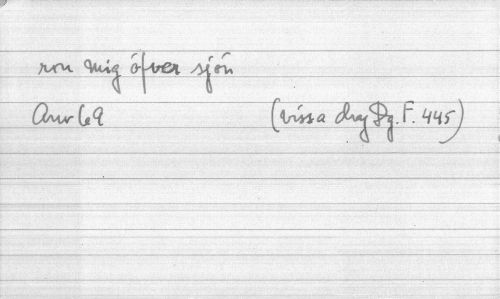 ron mig öfver sjön
Arw 69 (vissa drag Dg. F. 445)